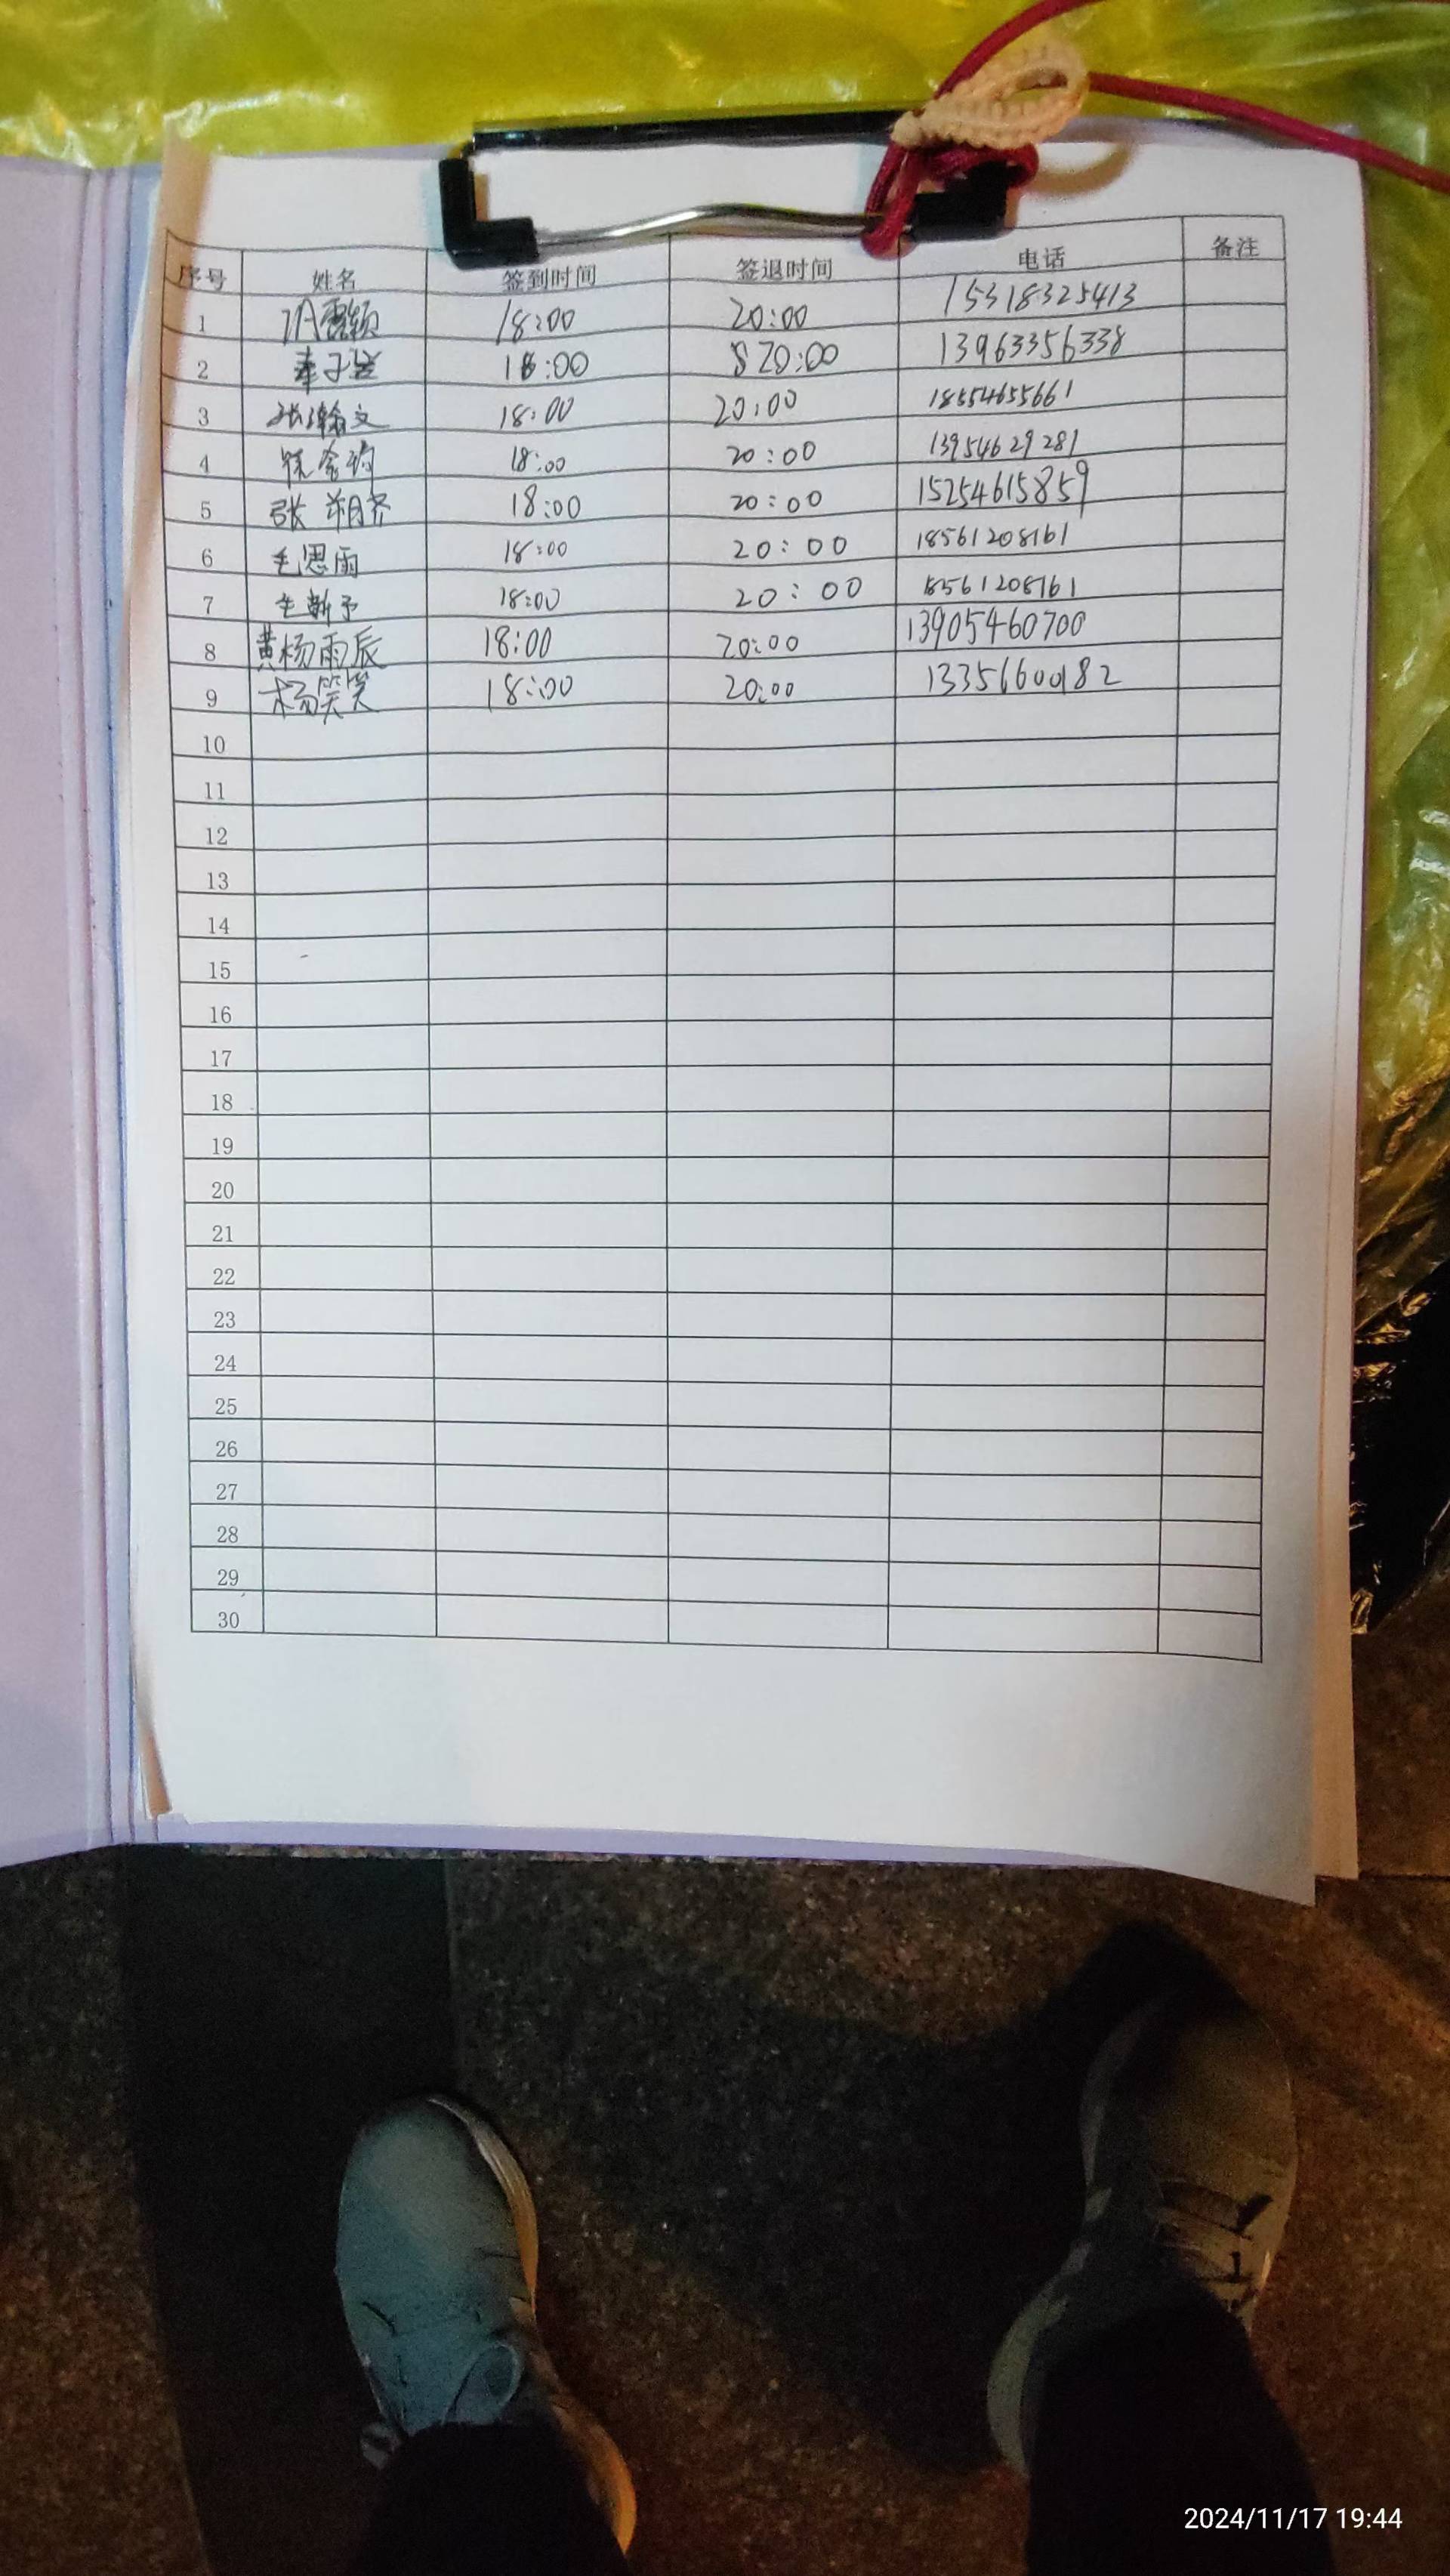 序号 姓名 签到时间 签退时间 电话 备注
1 18:00 20:00 15318325413
2 18:00 20:00 13963356338
3 张瀚文 18:00 20:00 18554655661
4 18:00 20:00 13954629281
5 张翔齐 18:00 20:00 15254615859
6 毛思雨 18:00 20:00 18561208161
7 18:00 20:00 18561208161
8 黄杨雨辰 18:00 20:00 13905460700
9 杨笑笑 18:00 20:00 13356600182
10
11
12
13
14
15
16
17
18
19
20
21
22
23
24
25
26
27
28
29
30
2024/11/17 19:44